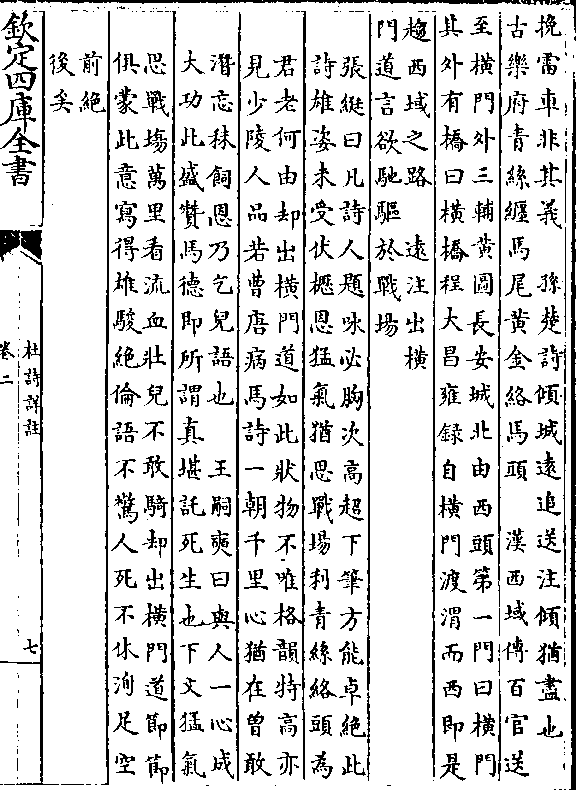 挽雷車非其義　孫楚詩傾城遠追送注傾猶盡也
古樂府青絲纏馬尾黃金絡馬頭　漢西域傳百官送
至橫門外三輔黃圖長安城北由西頭第一門曰橫門
其外有橋曰橫橋程大昌雍錄自橫門渡渭而西即是
趨西域之路　遠注出橫
門道言欲馳驅於戰場
張綖曰凡詩人題咏必胸次高超下筆方能卓絶此
詩雄姿未受伏櫪恩猛氣猶思戰場利青絲絡頭為
君老何由却出橫門道如此狀物不唯格韻特高亦
見少陵人品若曹唐病馬詩一朝千里心猶在曾敢
潛忘秣飼恩乃乞兒語也　王嗣奭曰與人一心成
大功此盛贊馬德即所謂真堪託死生也下文猛氣
思戰塲萬里看流血壯兒不敢騎却出橫門道節節
俱蒙此意寫得雄駿絶倫語不驚人死不休洵足空
前絶
後矣
欽定四庫全書
杜詩詳註
卷二
七